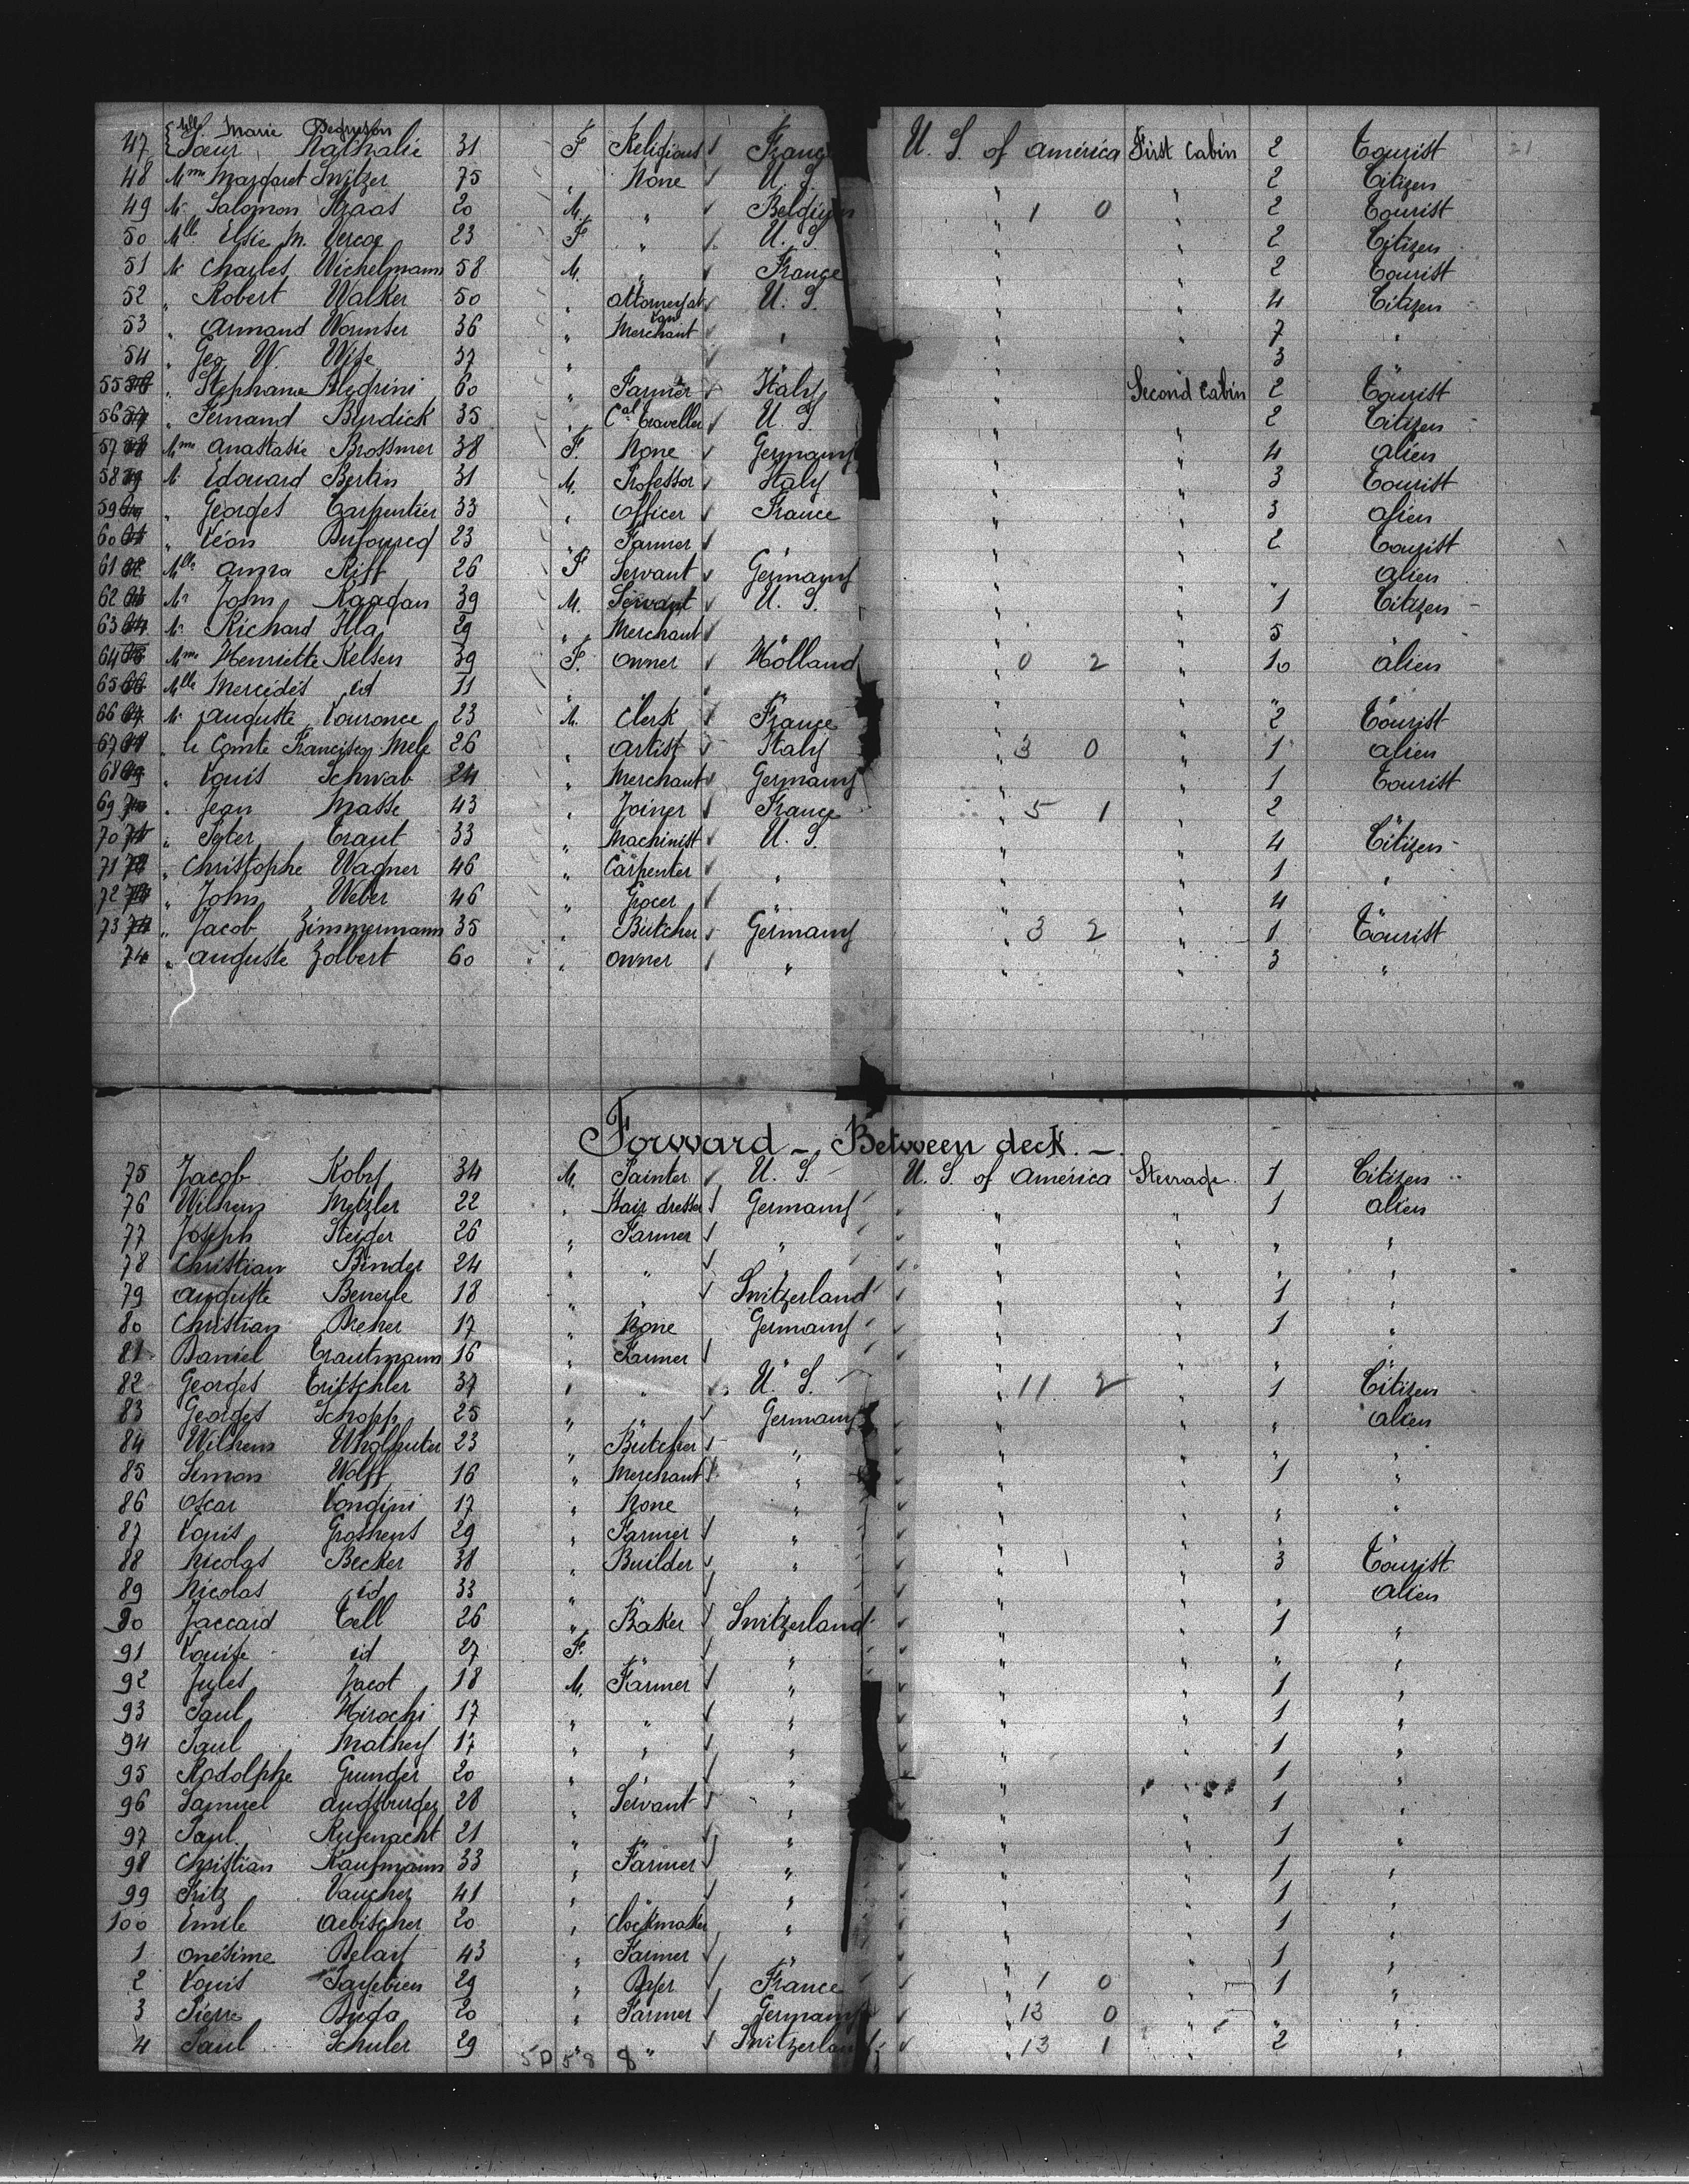 Mlle. Marie
47 Soeur Nathalie 31 F Religious France U. S. of America First Cabin 2 Tourist 21
48 Mme Margaret Switzer 75 " None U. S. " " 2 Citizen
49 Mr Salomon Staas 20 M. " Belgium " 1 0 " 2 Tourist
50 Mlle Elsie M. Vercoe 23 F " U. S. " " 2 Citizen
51 Mr Charles Wichelmann 58 M. " France " " 2 Tourist
52 " Robert Walker 50 " Attorney at Law U. S. " " 4 Citizen
53 " Armand Wormser 36 " Merchant " " " 7 "
54 " Geo W. Wise 37 " " " " " 3 "
55 " Stephane 60 " Farmer Italy " Second Cabin 2 Tourist
56 " Fernand Burdick 35 " Cal Traveller U. S. " " 2 Citizen
57 Mme Anastasie Brossmer 38 F. None Germany " " 4 Alien
58 Mr Edouard Bertin 31 M. Professor Italy " " 3 Tourist
59 " Georges Carpentier 33 " Officer France " " 3 Alien
60 " Léon Dufourcq 23 " Farmer " " " 2 Tourist
61 Mlle Anna Riff 26 F Servant Germany " " " Alien
62 Mr John Kaagan 39 M. Servant U. S. " " 1 Citizen
63 Mr Richard Illa 29 " Merchant " " " 5 "
64 Mme Henriette Kelsen 39 F. Owner Holland " 0 2 " 10 Alien
65 Mlle Mercédès id 11 " " " " " " "
66 Mr Auguste Louronce 23 M. Clerk France " " 2 Tourist
67 " le Comte Francisco Mele 26 " Artist Italy " 3 0 " 1 Alien
68 " Louis Schwab 24 " Merchant Germany " " 1 Tourist
69 " Jean Masse 43 " Joiner France " 5 1 " 2 "
70 " Peter Traut 33 " Machinist U. S. " " 4 Citizen
71 " Christophe Wagner 46 " Carpenter " " " 1 "
72 " John Weber 46 " Grocer " " " 4 "
73 " Jacob Zimmermann 35 " Butcher Germany " 3 2 " 1 Tourist
74 " Auguste Zolbert 60 " Owner " " " 3 "
Forward - Between deck. -
75 Jacob Koby 34 M. Painter U. S. U. S. of America Sterrage 1 Citizen
76 Wilhem Metzler 22 " Hair dresser Germany " " 1 Alien
77 Joseph Steiger 26 " Farmer " " " " "
78 Christian Binder 24 " " " " " " "
79 Auguste Beneyle 18 " " Switzerland " " 1 "
80 Christian Dreher 17 " None Germany " " 1 "
81 Daniel Trautmann 16 " Farmer " " " " "
82 Georges Tritschler 37 " " U. S. " 11 2 " 1 Citizen
83 Georges Schopp 25 " " Germany " " " Alien
84 Wilhem Wholhuter 23 " Butcher " " " " "
85 Simon Wolff 16 " Merchant " " " 1 "
86 Oscar Londini 17 " None " " " " "
87 Louis Groshens 29 " Farmer " " " " "
88 Nicolas Becker 38 " Builder " " " 3 Tourist
89 Nicolas id 33 " " " " " " Alien
90 Jaccard Tell 26 " Baker Switzerland " " 1 "
91 Louise id 27 F. " " " " " "
92 Jules Jacot 18 M. Farmer " " " 1 "
93 Paul Hirochi 17 " " " " " 1 "
94 Paul Mathey 17 " " " " " 1 "
95 Rodolphe Gunder 20 " " " " " 1 "
96 Samuel Augsburger 28 " Servant " " " 1 "
97 Paul Rufenacht 21 " " " " " 1 "
98 Christian Kaufmann 33 " Farmer " " " 1 "
99 Fritz Vaucher 41 " " " " " 1 "
100 Emile Aebischer 20 " Clockmaker " " " 1 "
1 Onésime Belait 43 " Farmer " " " 1 "
2 Louis Payebien 29 " " France " 1 0 " 1 "
3 Pierre Buda 20 " Farmer Germany " 13 0 " " "
4 Paul Schuler 29 " " Switzerland " 13 1 " 2 "
5D 58 8